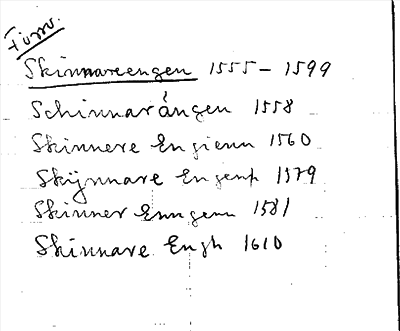 Försv.
Skinnareengen 1555-1599
Schinnarángen 1558
Skinnere Engienn 1560
Skÿnnare Engenn 1579
Skinner Enngenn 1581
Skinnare Engh 1610